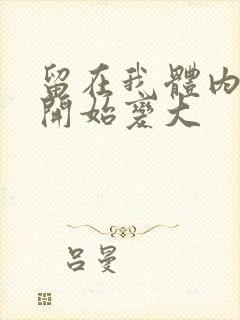 留在我體內
開始變大
呂曼